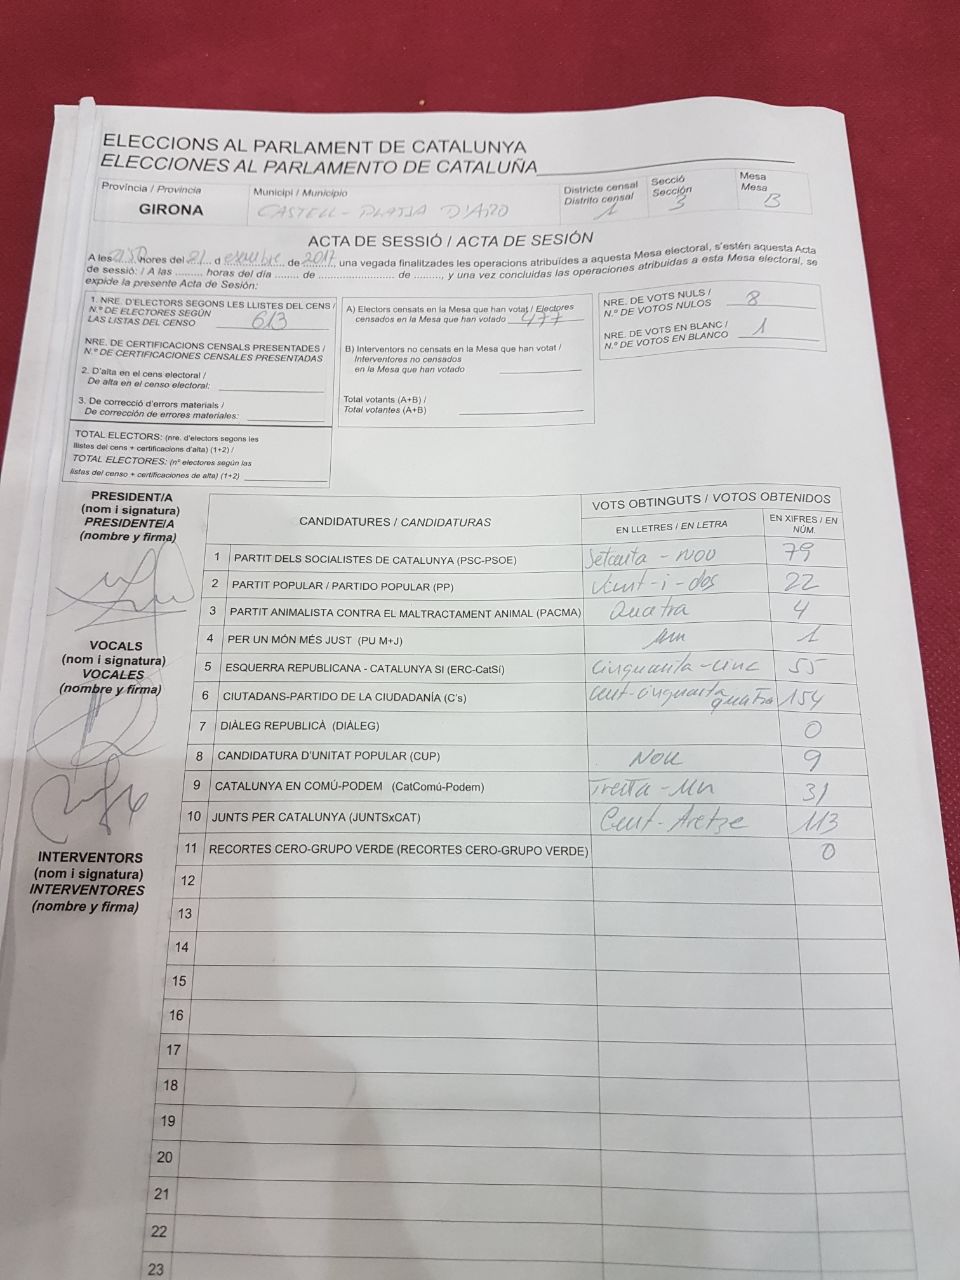 ELECCIONS AL PARLAMENT DE CATALUNYA
ELECCIONES AL PARLAMENTO DE CATALUÑA
Província / Provincia
GIRONA
Municipi / Municipio
CASTELL - PLATJA D'ARO
Districte censal
Distrito censal
1
Secció
Sección
3
Mesa
Mesa
B
ACTA DE SESSIÓ / ACTA DE SESIÓN
A les hores del 21 d desembre de 2017, una vegada finalitzades les operacions atribuïdes a aquesta Mesa electoral, s'estén aquesta Acta
de sessió: / A las ......... horas del día ....... de ........................ de ........., y una vez concluidas las operaciones atribuidas a esta Mesa electoral, se
expide la presente Acta de Sesión:
1. NRE. D'ELECTORS SEGONS LES LLISTES DEL CENS /
N.º DE ELECTORES SEGÚN
LAS LISTAS DEL CENSO 613
NRE. DE CERTIFICACIONS CENSALS PRESENTADES /
N.º DE CERTIFICACIONES CENSALES PRESENTADAS
2. D'alta en el cens electoral /
De alta en el censo electoral:
3. De correcció d'errors materials /
De corrección de errores materiales:
TOTAL ELECTORS: (nre. d'electors segons les
llistes del cens + certificacions d'alta) (1+2) /
TOTAL ELECTORES: (nº electores según las
listas del censo + certificaciones de alta) (1+2)
A) Electors censats en la Mesa que han votat / Electores
censados en la Mesa que han votado 477
B) Interventors no censats en la Mesa que han votat /
Interventores no censados
en la Mesa que han votado
Total votants (A+B) /
Total votantes (A+B)
NRE. DE VOTS NULS /
N.º DE VOTOS NULOS 8
NRE. DE VOTS EN BLANC /
N.º DE VOTOS EN BLANCO 1
PRESIDENT/A
(nom i signatura)
PRESIDENTE/A
(nombre y firma)
VOCALS
(nom i signatura)
VOCALES
(nombre y firma)
INTERVENTORS
(nom i signatura)
INTERVENTORES
(nombre y firma)
CANDIDATURES / CANDIDATURAS
VOTS OBTINGUTS / VOTOS OBTENIDOS
EN LLETRES / EN LETRA
EN XIFRES / EN
NÚM.
1 PARTIT DELS SOCIALISTES DE CATALUNYA (PSC-PSOE) Setanta - nou 79
2 PARTIT POPULAR / PARTIDO POPULAR (PP) Vint-i-dos 22
3 PARTIT ANIMALISTA CONTRA EL MALTRACTAMENT ANIMAL (PACMA) Quatra 4
4 PER UN MÓN MÉS JUST (PU M+J) un 1
5 ESQUERRA REPUBLICANA - CATALUNYA SI (ERC-CatSí) Cinquanta-cinc 55
6 CIUTADANS-PARTIDO DE LA CIUDADANÍA (C's) Cent-cinquanta quatra 154
7 DIÀLEG REPUBLICÀ (DIÀLEG) 0
8 CANDIDATURA D'UNITAT POPULAR (CUP) Nou 9
9 CATALUNYA EN COMÚ-PODEM (CatComú-Podem) Treita-un 31
10 JUNTS PER CATALUNYA (JUNTSxCAT) Cent-tretze 113
11 RECORTES CERO-GRUPO VERDE (RECORTES CERO-GRUPO VERDE) 0
12
13
14
15
16
17
18
19
20
21
22
23